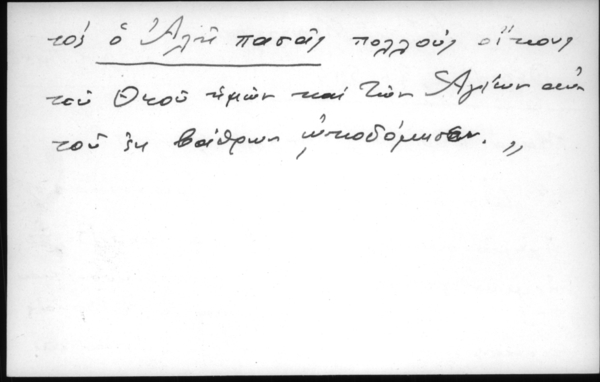 τος ὁ Ἀλῆ πασᾶς πολλοὺς οἴκους
τοῦ Θεοῦ ἡμῶν καὶ τῶν Ἁγίων αὐ
τοῦ ἐκ βάθρων ᾠκοδόμησεν."